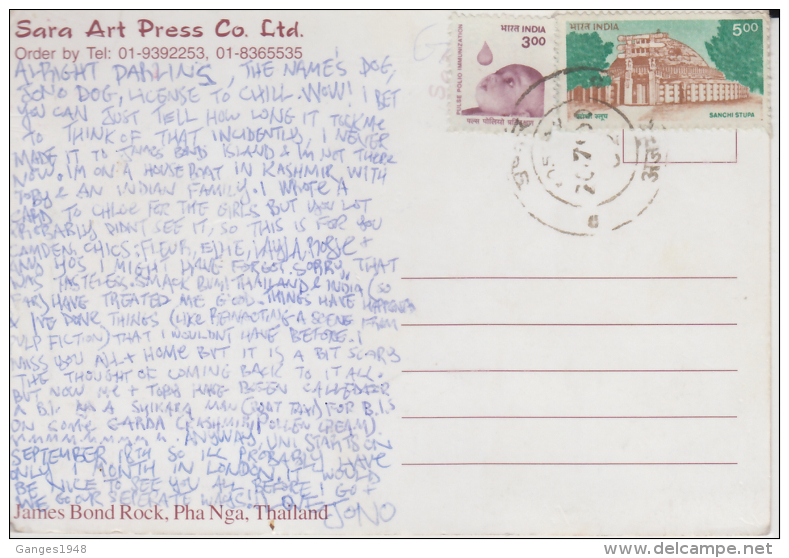 Sara Art Press Co. Ltd.
Order by Tel: 01-9392253, 01-8365535
भारत INDIA
3.00
PULSE POLIO IMMUNIZATION
भारत INDIA
5.00
सांची स्तूप
SANCHI STUPA
ALRIGHT DARLINGS, THE NAME'S DOG,
JONO DOG, LICENSE TO CHILL. WOW! I BET
YOU CAN JUST TELL HOW LONG IT TOOK ME
TO THINK OF THAT INCIDENTLY, I NEVER
MADE IT TO JAMES BOND ISLAND & I'M NOT THERE
NOW. I'M ON A HOUSEBOAT IN KASHMIR WITH
TOBY & AN INDIAN FAMILY. I WROTE A
CARD TO CHLOE FOR THE GIRLS BUT YOU LOT
PROBABLY DIDNT SEE IT, SO THIS IS FOR YOU
CAMDEN CHICS: FLEUR, ELLIE, LAYLA, +
ANY HO'S I MIGHT HAVE FORGOT. SORRY, THAT
WAS TASTELESS. SMACK BUM! THAILAND & INDIA (SO
FAR) HAVE TREATED ME GOOD. THINGS HAVE HAPPENED
& I'VE DONE THINGS (LIKE REENACTING A SCENE FROM
PULP FICTION) THAT I WOULDN'T HAVE BEFORE. I
MISS YOU ALL + HOME BUT IT IS A BIT SCARY
THE THOUGHT OF COMING BACK TO IT ALL.
BUT NOW ME + TOBY HAVE BEEN CALLED FOR
A B.J. ON A SHIKARA MAN (BOAT TAXI) FOR B.J.S
ON SOME GARDA (KASHMIRI POLLEN CREAM).
ANYWAY, UNI STARTS ON
SEPTEMBER 18TH SO ILL PROBABLY HAVE
ONLY 1 MONTH IN LONDON, IT WOULD
BE NICE TO SEE YOU ALL BEFORE I GO +
WE GO OUR SEPERATE WAYS. LOVE JONO
James Bond Rock, Pha Nga, Thailand
Ganges1948
www.delcampe.net